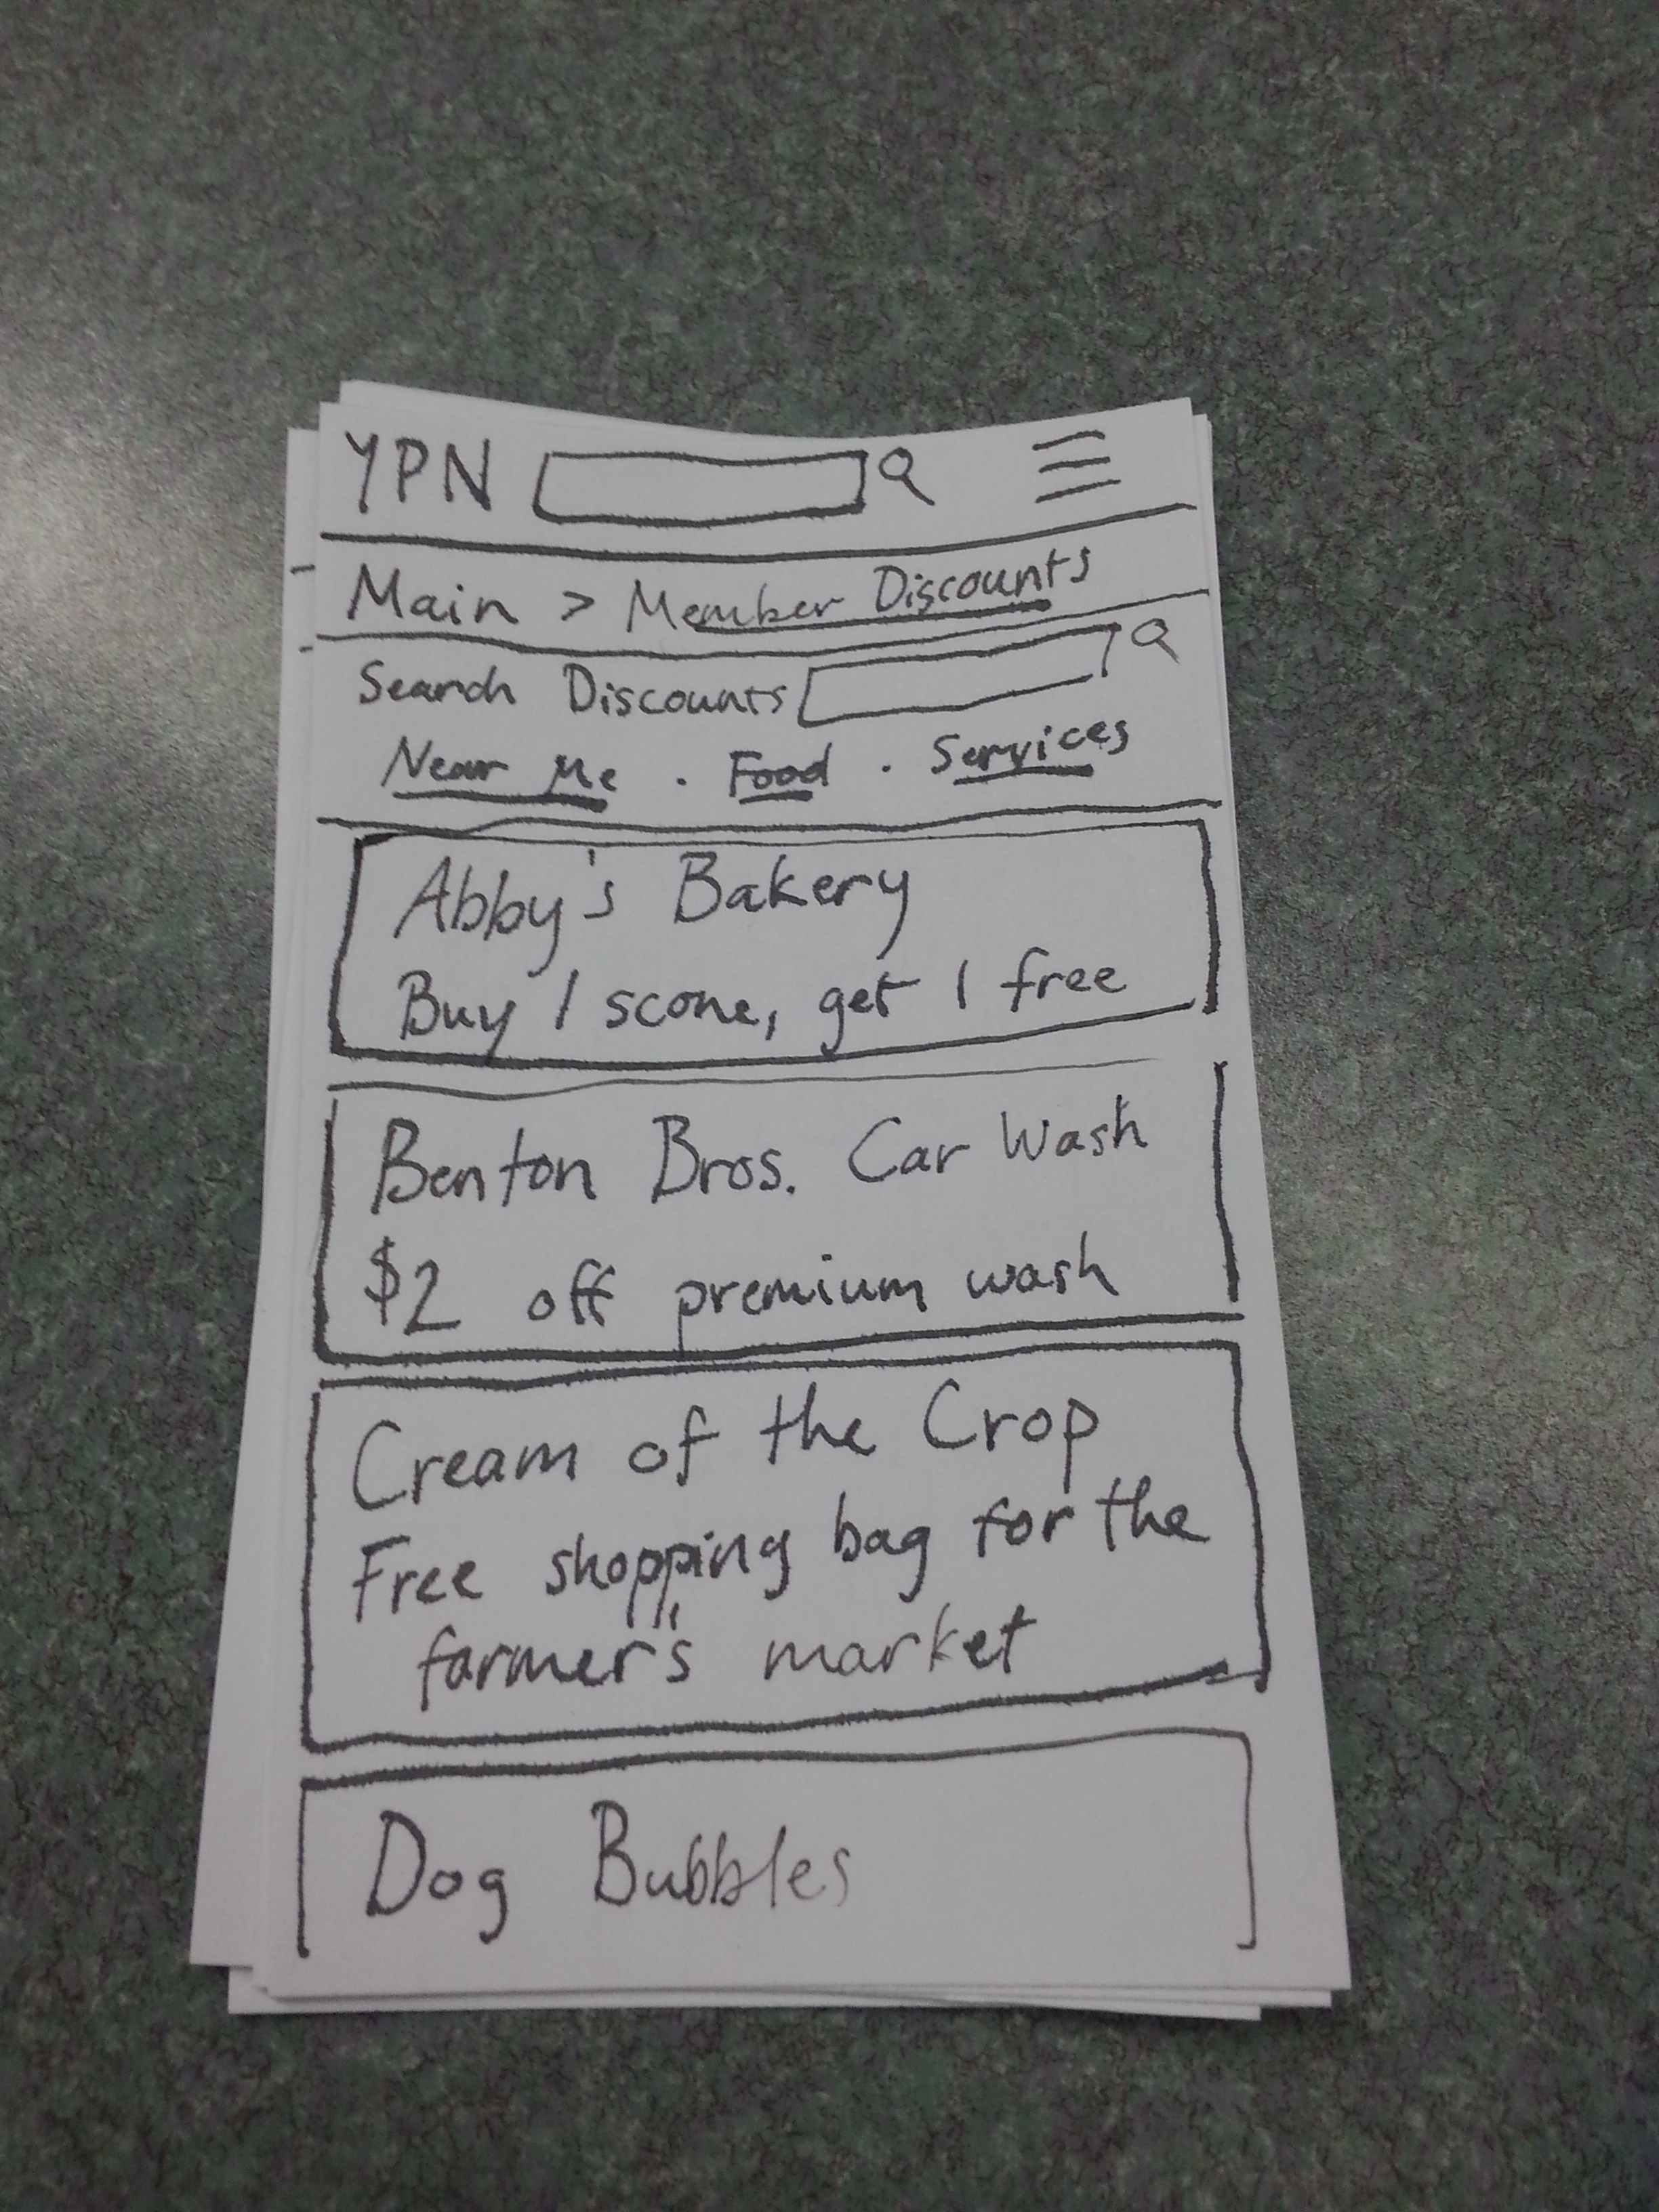 YPN
Main > Member Discounts
Search Discounts
Near Me . Food . Services
Abby's Bakery
Buy 1 scone, get 1 free
Benton Bros. Car Wash
$2 off premium wash
Cream of the Crop
Free shopping bag for the
farmer's market
Dog Bubbles